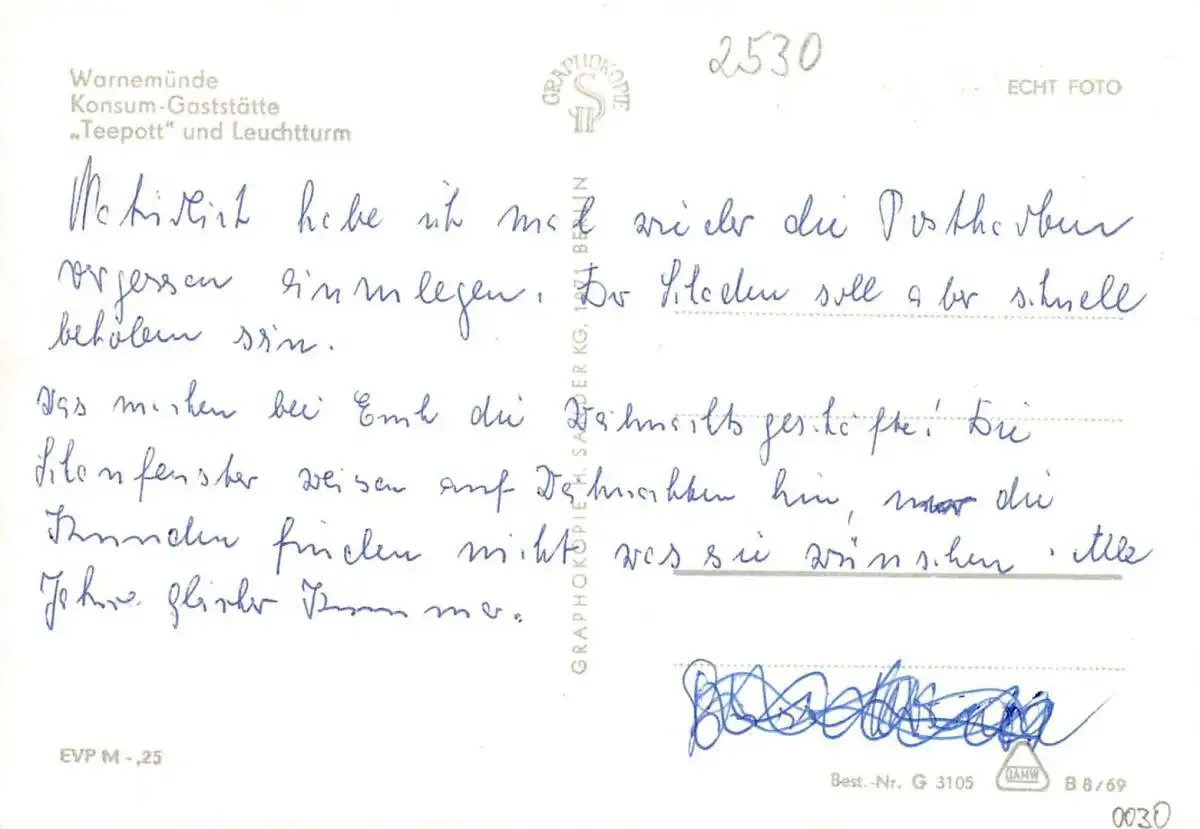 2530
GRAPHOKOPIE
HS
ECHT FOTO
Warnemünde
Konsum-Gaststätte
„Teepott" und Leuchtturm
Natürlich habe ich mal wieder die Postkarten
vergessen einzulegen. Der Schaden soll aber schnell
behoben sein.
Was machen bei Euch die Weihnachtsgeschäfte! Die
Schaufenster weisen auf Weihnachten hin, nur die
Kunden finden nicht was sie wünschen. Alle
Jahre gleicher Kummer.
GRAPHOKOPIE H. SANDER KG, 1071 BERLIN
EVP M -,25
Best.-Nr. G 3105
DAMW
B 8/69
0030